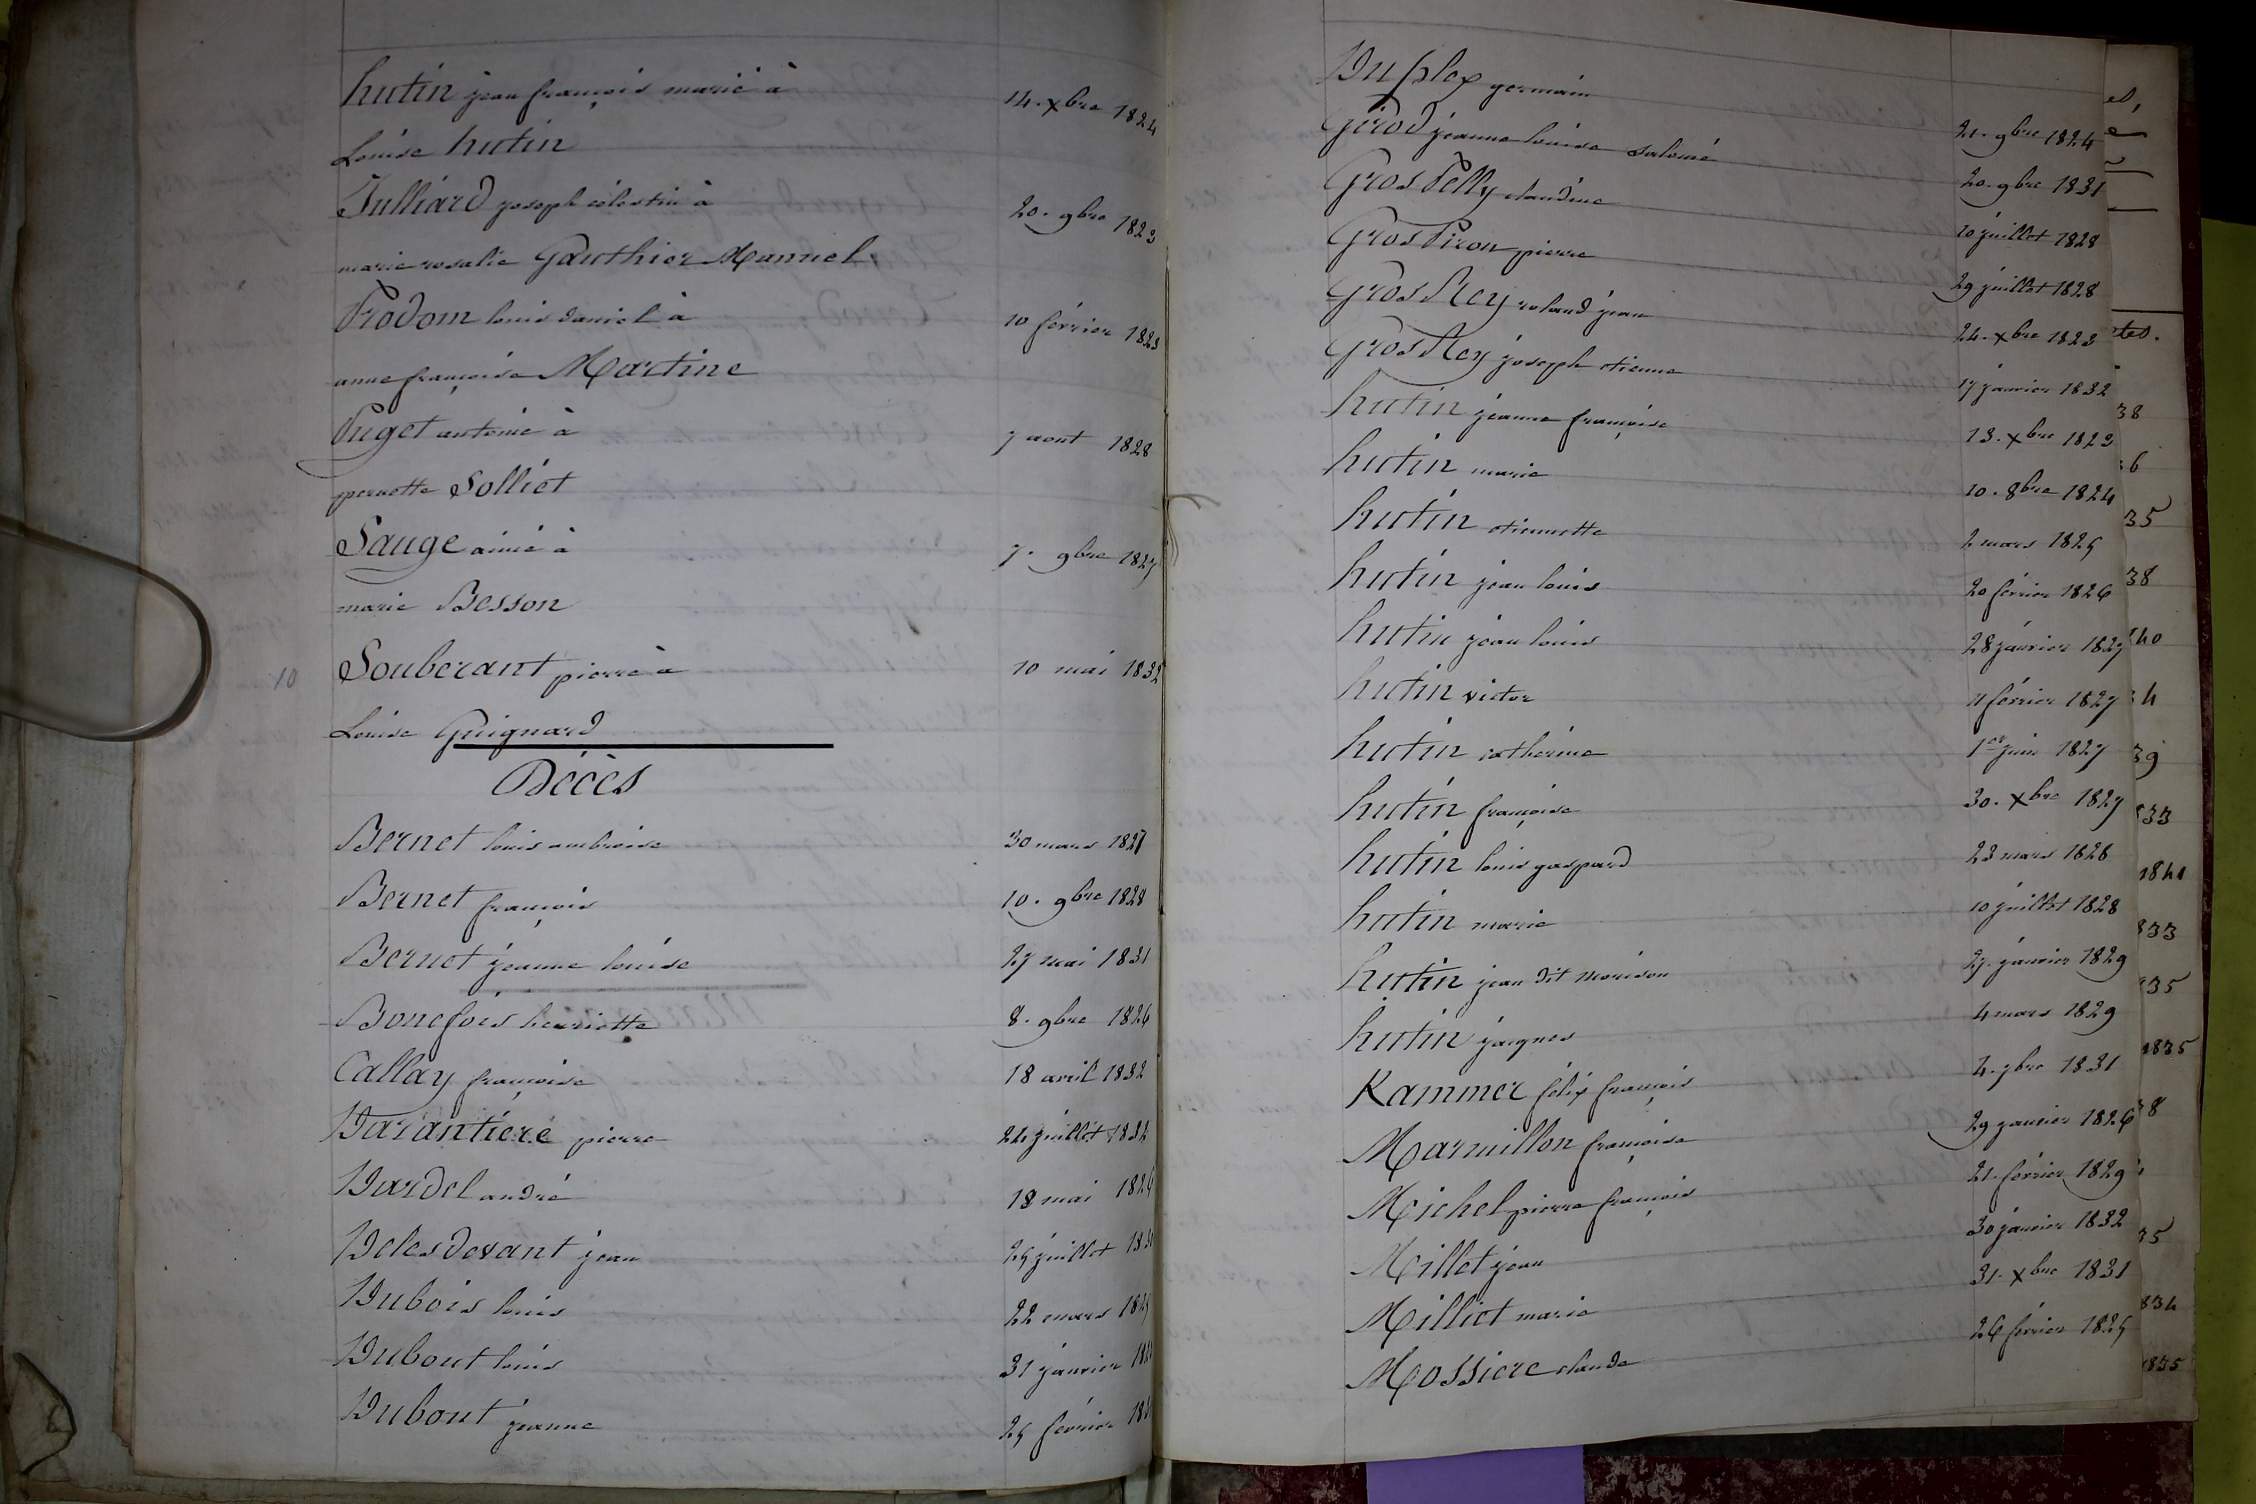 hutin jean françois marié à 14. xbre 1824
Louise hutin
Julliard joseph célestin à 20. 9bre 1823
marie rosalie Gauthier Manuel
Prodom louis daniel à 10 février 1823
anne françoise Martine
Puget antoine à 7 aout 1828
pernette Solliet
Sauge aimé à 7. 9bre 1827
marie Besson
10 Souberant pierre à 10 mai 1832
Louise Guignard
Décès
Bernet louis ambroise 30 mars 1827
Bernet françois 10. 9bre 1828
Bernet jeanne louise 27 mai 1831
Bonefois henriette 8. 9bre 1826
Callay françoise 18 avril 1832
Darantiere pierre 24 juillet 1832
Dardel andré 18 mai
Delesdevant jean 25 juillet
Dubois louis 22 mars
Dubout louis 31 janvier
Dubout jeanne 25 février
Duplex germain 21. 9bre 1824
Girod jeanne louise salomé 20. 9bre 1831
Gros Pelly claudine 10 juillet 1828
Gros Piron pierre 29 juillet 1828
Gros Rey roland jean 24. xbre 1823
Gros Rey joseph etienne 17 janvier 1832
hutin jeanne françoise 13. xbre 1823
hutin marie 10. 8bre 1824
hutin etiennette 2 mars 1825
hutin jean louis 20 février 1826
hutin jean louis 28 janvier 1827
hutin victor 11 février 1827
hutin catherine 1er juin 1827
hutin françoise 30. xbre 1827
hutin louis gaspard 23 mars 1828
hutin marie 10 juillet 1828
hutin jean dit morison 27. janvier 1829
hutin jaques 4 mars 1829
Kammer félix françois 4. 9bre 1831
Marmillon françoise 29 janvier 1826
Michel pierre françois 21. février 1829
Millet jean 30 janvier 1832
Milliet marie 31. xbre 1831
Mossiere claude 26 février 1825